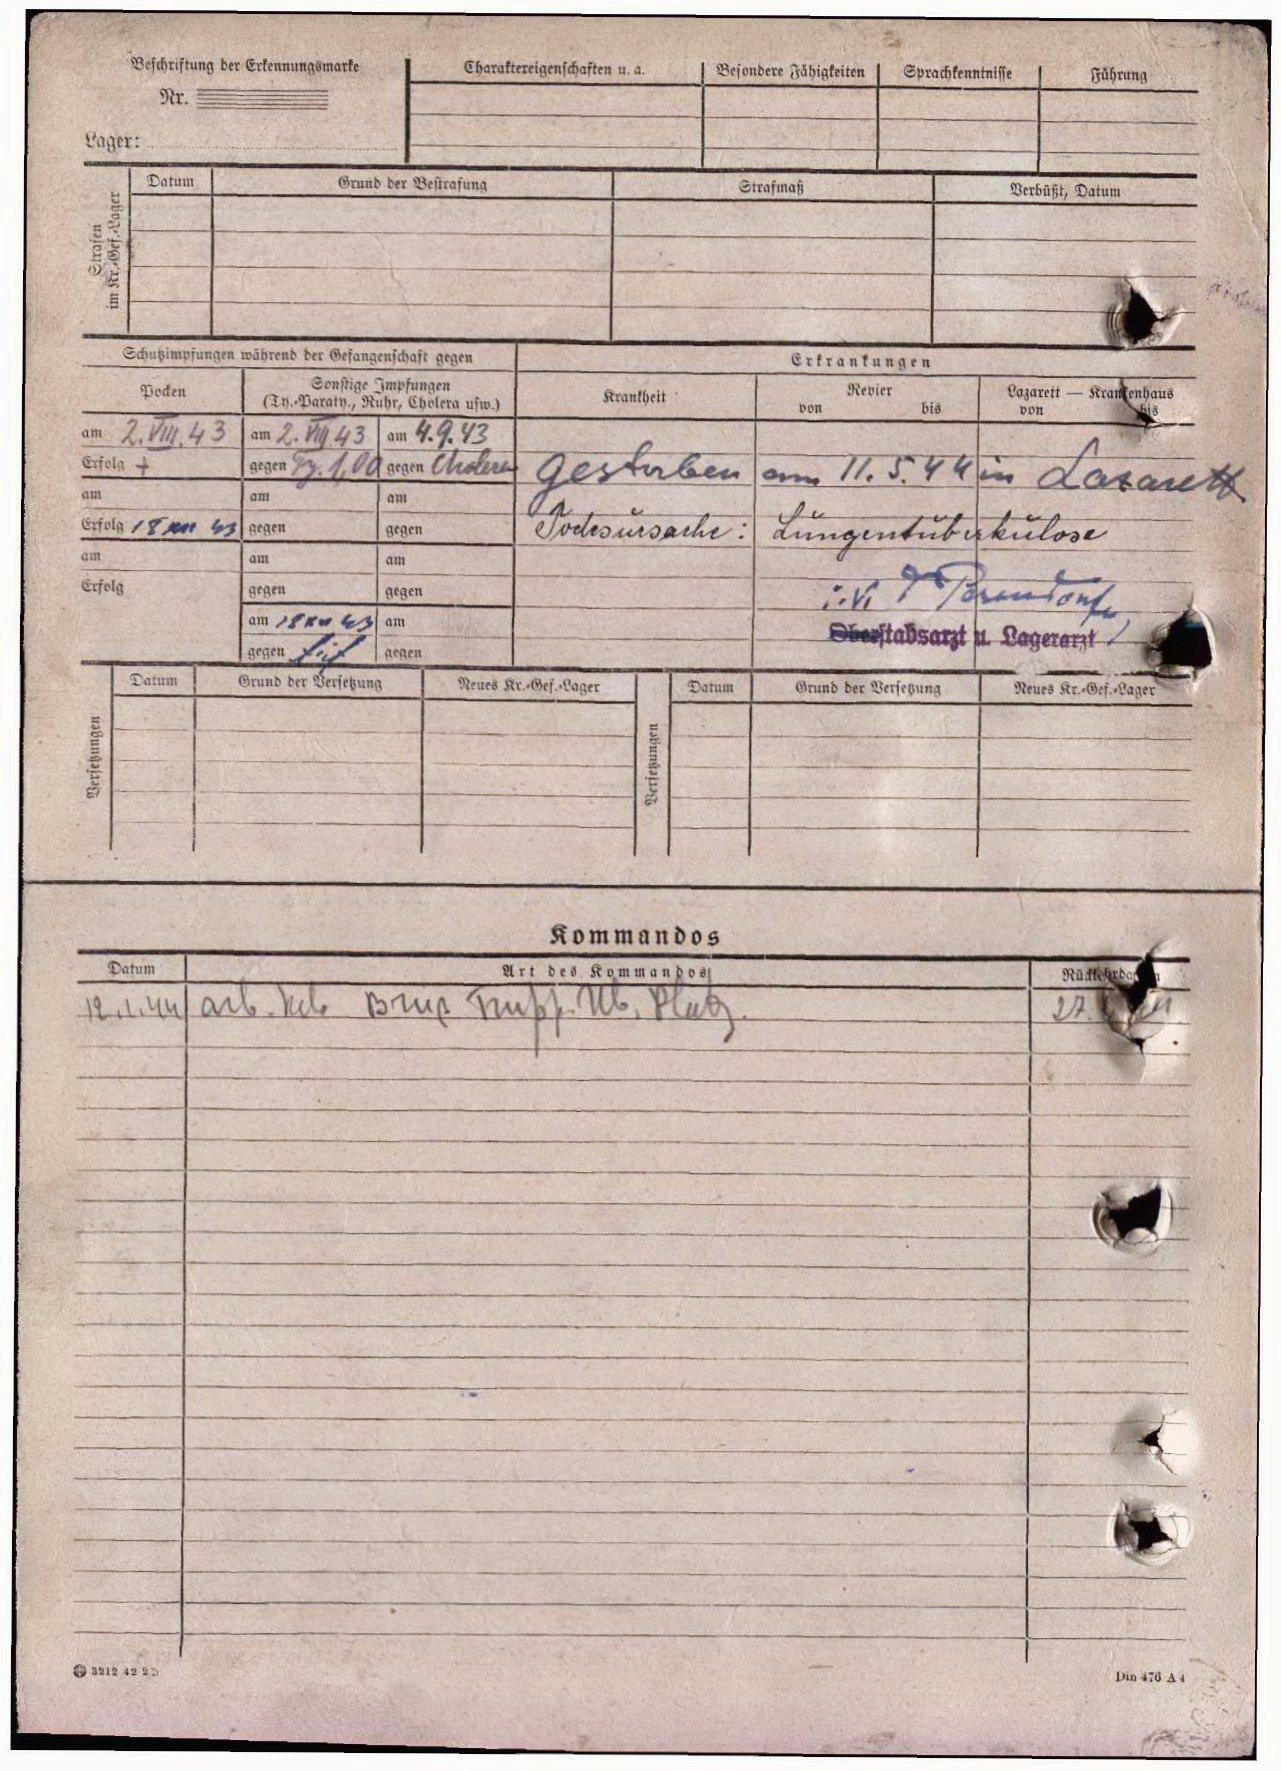 Beschriftung der Erkennungsmarke
Nr.
Lager:
Charaktereigenschaften u. a.
Besondere Fähigkeiten
Sprachkenntnisse
Führung
Strafen im Kr.-Gef.-Lager
Datum
Grund der Bestrafung
Strafmaß
Verbüßt, Datum
Schutzimpfungen während der Gefangenschaft gegen
Erkrankungen
Pocken
Sonstige Impfungen
(Ty.-Paraty., Ruhr, Cholera usw.)
Krankheit
Revier
von bis
Lazarett — Krankenhaus
von bis
am 2. VIII. 43 am 2. VIII 43 am 4.9.43
Erfolg + gegen Ty. 1,00 gegen Cholera
gestorben am 11. 5. 44 in Lazarett
am am am
Erfolg 18 XII 43 gegen gegen
Todesursache: Lungentuberkulose
am am am
Erfolg gegen gegen
i. V.
am 18 XII 43 am
Oberstabsarzt u. Lagerarzt
gegen gegen
Versetzungen
Datum
Grund der Versetzung
Neues Kr.-Gef.-Lager
Versetzungen
Datum
Grund der Versetzung
Neues Kr.-Gef.-Lager
Kommandos
Datum
Art des Kommandos
12.1.44 arb. Kdo Brüx Trupp. Üb. Platz. 27.
3212 42 2 D
Din 476 A 4